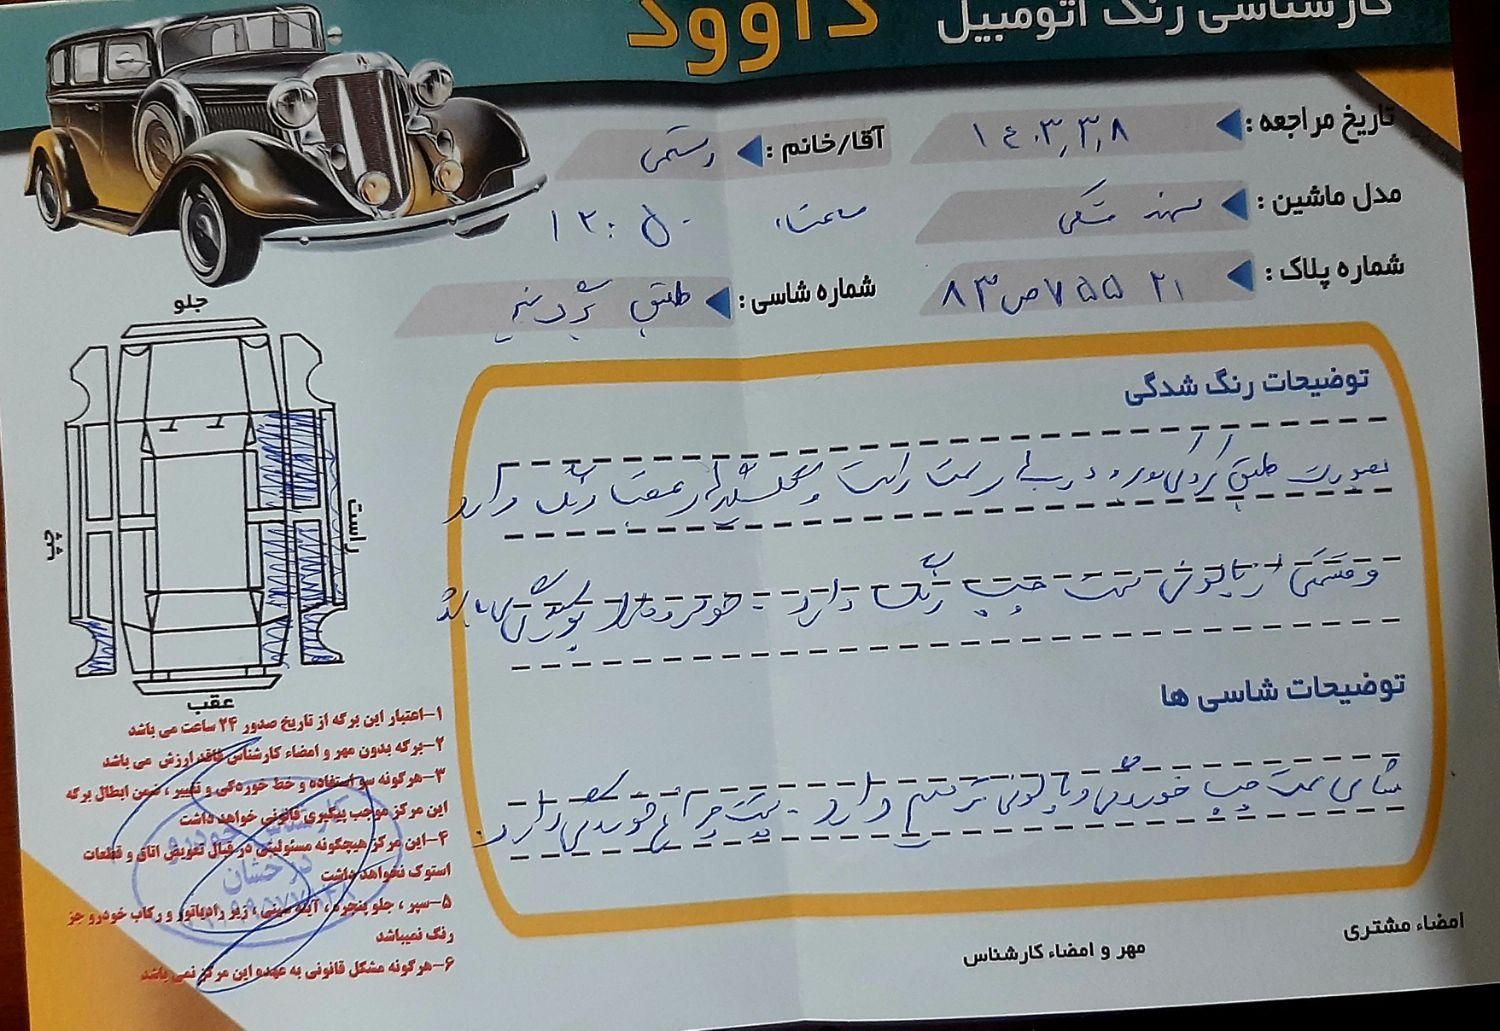 کارشناسی رنگ اتومبیل داوود
تاریخ مراجعه : ۱۴۰۳,۳,۸
آقا/خانم : رستمی
مدل ماشین : سهند مشکی
ساعت ۱۲:۵۰
شماره پلاک : ۲۱ ۷۵۵ص۸۳
شماره شاسی : طبق
جلو
چپ
راست
عقب
توضیحات رنگ شدگی
بصورت طبق کروکی دوره درب سمت راست و گلگیر عقب رنگ دارد
و قسمتی از پالونی سمت چپ رنگ دارد - خودرو
توضیحات شاسی ها
شاسی سمت چپ خوردگی و پالونی ترمیم دارد - پشت چراغ خوردگی دارد.
۱-اعتبار این برگه از تاریخ صدور ۲۴ ساعت می باشد
۲-برگه بدون مهر و امضاء کارشناس فاقد ارزش می باشد
۳-هرگونه سو استفاده و خط خوردگی و تغییر ، ضمن ابطال برگه
این مرکز موجب پیگیری قانونی خواهد داشت
۴-این مرکز هیچگونه مسئولیتی در قبال تعویض اتاق و قطعات
استوک نخواهد داشت
۵-سپر ، جلو پنجره ، آینه سینی ، زیر رادیاتور و رکاب خودرو جز
رنگ نمیباشد
۶-هرگونه مشکل قانونی به عهده این مرکز نمی باشد
کارشناسی خودرو
درخشان
مهر و امضاء کارشناس
امضاء مشتری